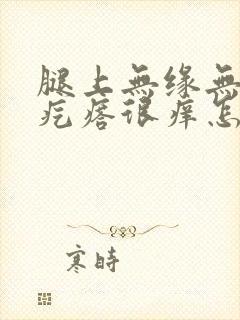 腿上無缘無
疙瘩很痒怎
寒時